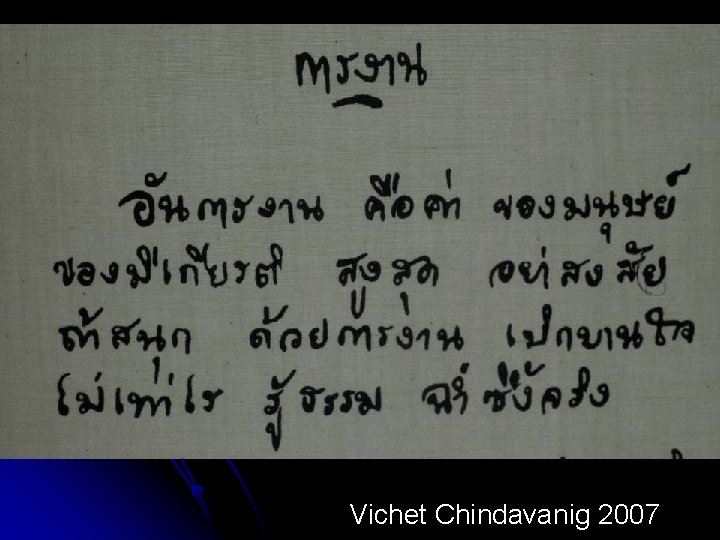 การงาน
อันการงาน คือค่า ของมนุษย์
ของมีเกียรติ สูงสุด อย่าสงสัย
ถ้าสนุก ด้วยการงาน เบิกบานใจ
ไม่เท่าไร รู้ธรรม ฉ่ำซึ้งจริง
Vichet Chindavanig 2007